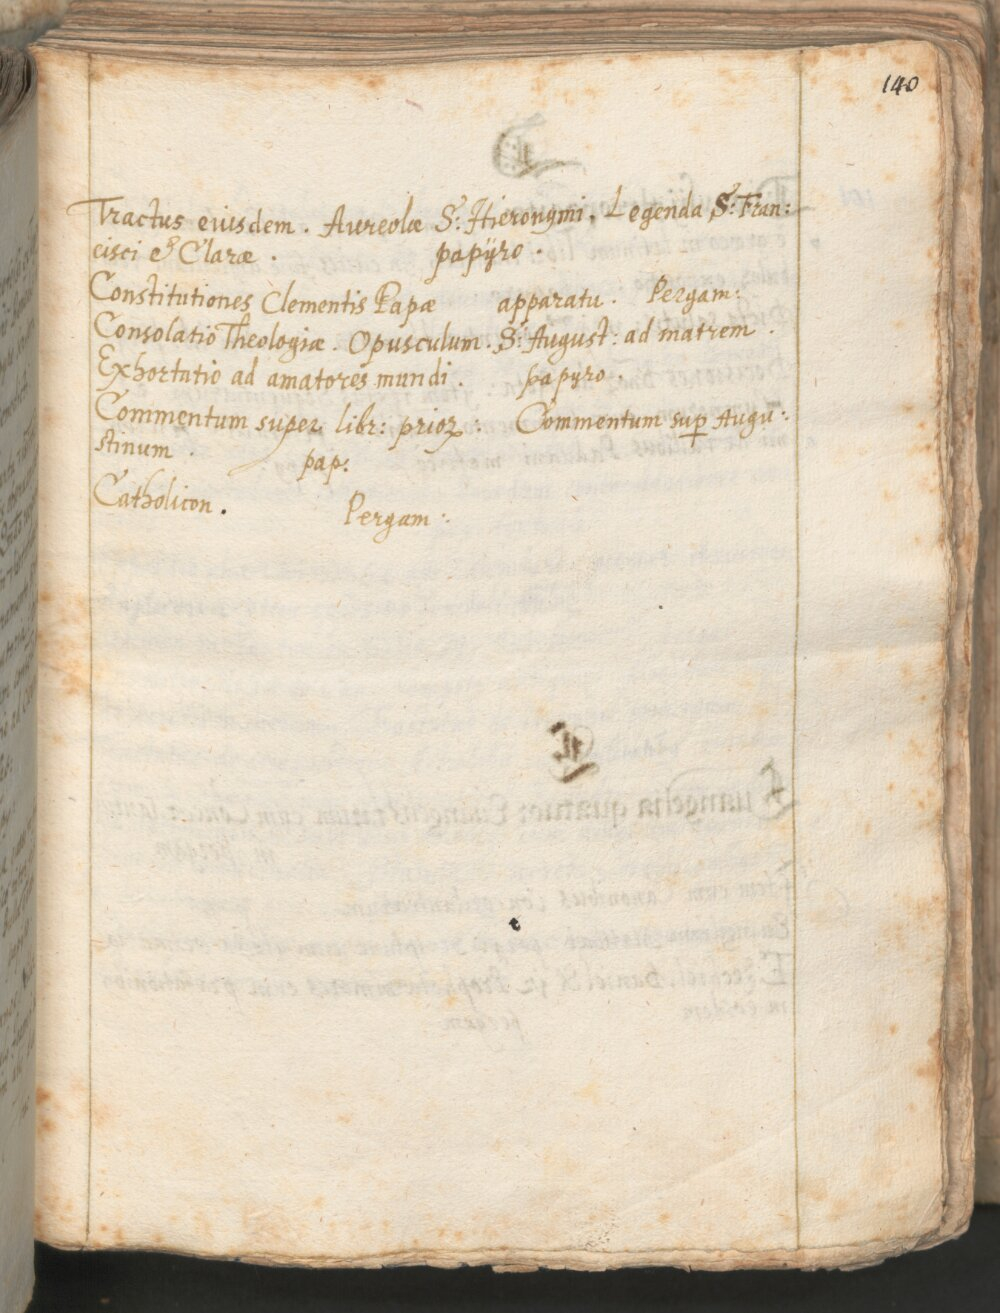 140
Tractus eiusdem. Aureolæ S: Hieronymi. Legenda S: Fran:
cisci & Claræ. papÿro.
Constitutiones Clementis Papæ apparatu. Pergam:
Consolatio Theologiæ. Opusculum. S: August: ad matrem.
Exhortatio ad amatores mundi. papyro.
Commentum super libr: prioꝝ: Commentum sup Augu:
stinum pap:
Catholicon. Pergam: